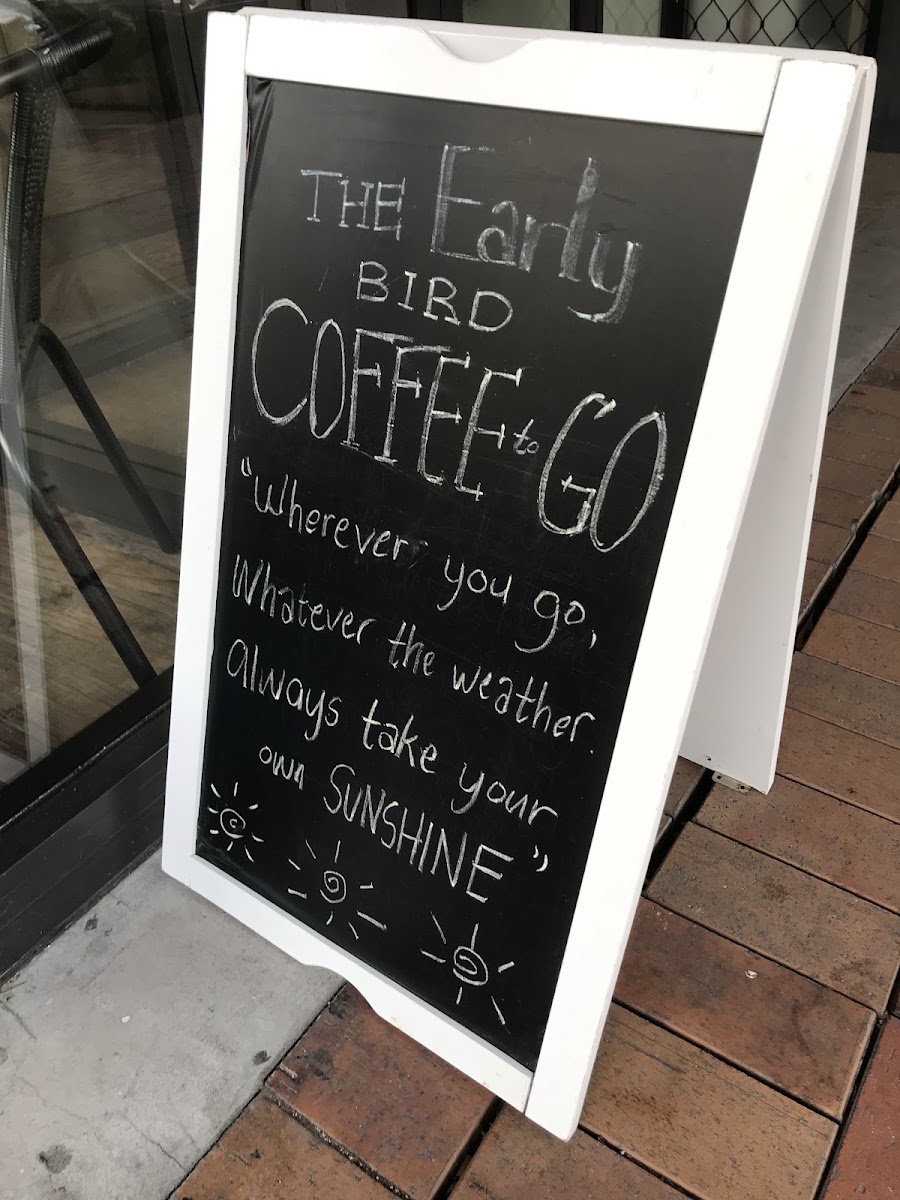 THE Early
BIRD
COFFEE to GO
"Wherever you go,
Whatever the weather.
always take your
own SUNSHINE"